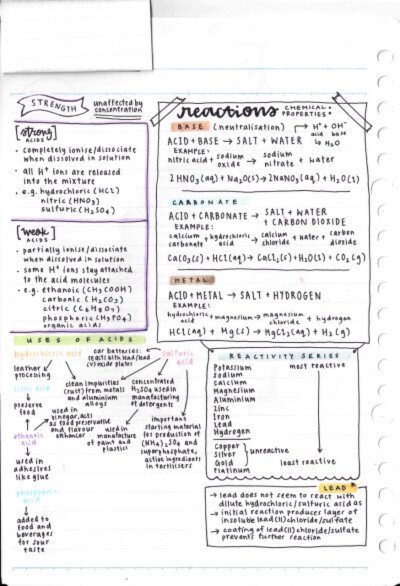 STRENGTH
unaffected by
concentration
[strong]
ACIDS
• completely ionise/dissociate
when dissolved in solution
• all H⁺ ions are released
into the mixture
• e.g. hydrochloric (HCl)
nitric (HNO₃)
sulfuric (H₂SO₄)
[weak]
ACIDS
• partially ionise/dissociate
when dissolved in solution
• some H⁺ ions stay attached
to the acid molecules
• e.g. ethanoic (CH₃COOH)
carbonic (H₂CO₃)
citric (C₆H₈O₇)
phosphoric (H₃PO₄)
organic acids
reactions
CHEMICAL
PROPERTIES
BASE (neutralisation)
H⁺ + OH⁻
acid base
→ H₂O
ACID + BASE → SALT + WATER
EXAMPLE:
nitric acid + sodium oxide → sodium nitrate + water
2HNO₃(aq) + Na₂O(s) → 2NaNO₃(aq) + H₂O(l)
CARBONATE
ACID + CARBONATE → SALT + WATER
+ CARBON DIOXIDE
EXAMPLE:
calcium carbonate + hydrochloric acid → calcium chloride + water + carbon dioxide
CaCO₃(s) + HCl(aq) → CaCl₂(s) + H₂O(l) + CO₂(g)
METAL
ACID + METAL → SALT + HYDROGEN
EXAMPLE:
hydrochloric acid + magnesium → magnesium chloride + hydrogen
HCl(aq) + Mg(s) → MgCl₂(aq) + H₂(g)
USES OF ACIDS
hydrochloric acid
leather
processing
clean impurities
(rust) from metals
and aluminium
alloys
car batteries:
reacts with lead/lead
(IV) oxide plates
sulfuric
acid
concentrated
H₂SO₄ used in
manufacturing
of detergents
used in
manufacture
of paint and
plastics
important
starting material
for production of
(NH₄)₂SO₄ and
superphosphate,
active ingredients
in fertilisers
citric acid
preserve
food
used in
vinegar, acts
as food preservative
and flavour
enhancer
ethanoic
acid
used in
adhesives
like glue
phosphoric
acid
added to
food and
beverages
for sour
taste
REACTIVITY SERIES
Potassium most reactive
Sodium
Calcium
Magnesium
Aluminium
Zinc
Iron
Lead
Hydrogen
Copper
Silver
Gold
Platinum
unreactive
least reactive
LEAD
→ lead does not seem to react with
dilute hydrochloric/sulfuric acid as
→ initial reaction produces layer of
insoluble lead(II) chloride/sulfate
→ coating of lead(II) chloride/sulfate
prevents further reaction